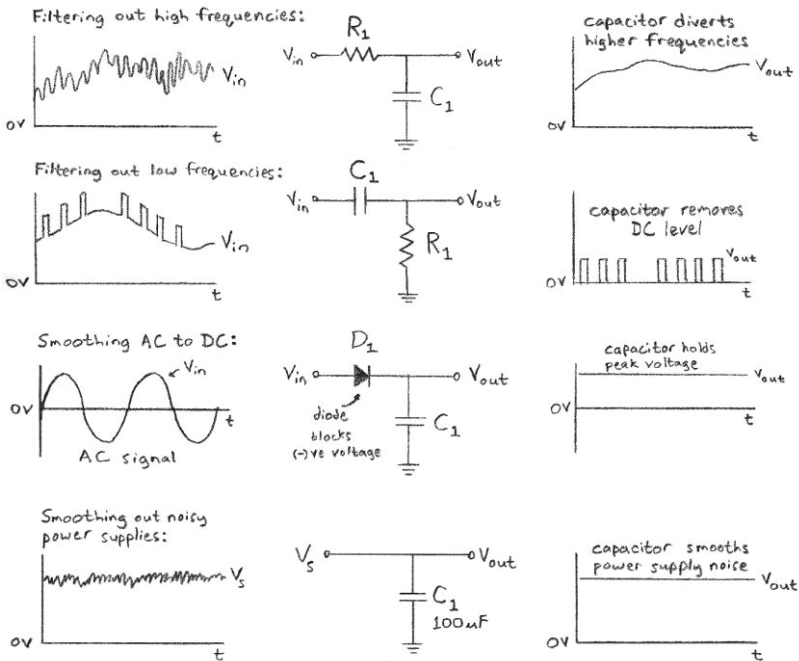 Filtering out high frequencies:
Vin
0V
t
Vin
R1
Vout
C1
capacitor diverts
higher frequencies
Vout
0V
t
Filtering out low frequencies:
Vin
0V
t
C1
Vin
Vout
R1
capacitor removes
DC level
Vout
0V
t
Smoothing AC to DC:
Vin
0V
t
AC signal
D1
Vin
Vout
diode
blocks
(-)ve voltage
C1
capacitor holds
peak voltage
Vout
0V
t
Smoothing out noisy
power supplies:
Vs
0V
t
Vs
Vout
C1
100uF
capacitor smooths
power supply noise
Vout
0V
t